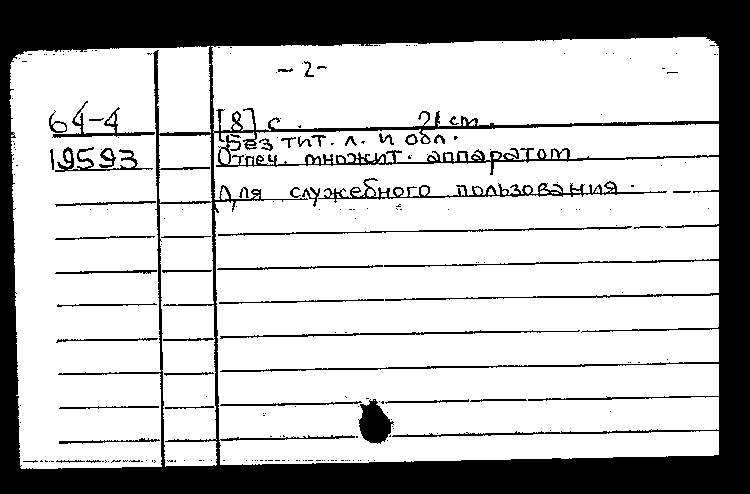 - 2-
64-4 [8] с. 21 cm.
Без тит. л. и обл.
19593 Отпеч. множит. аппаратом
Для служебного пользования.